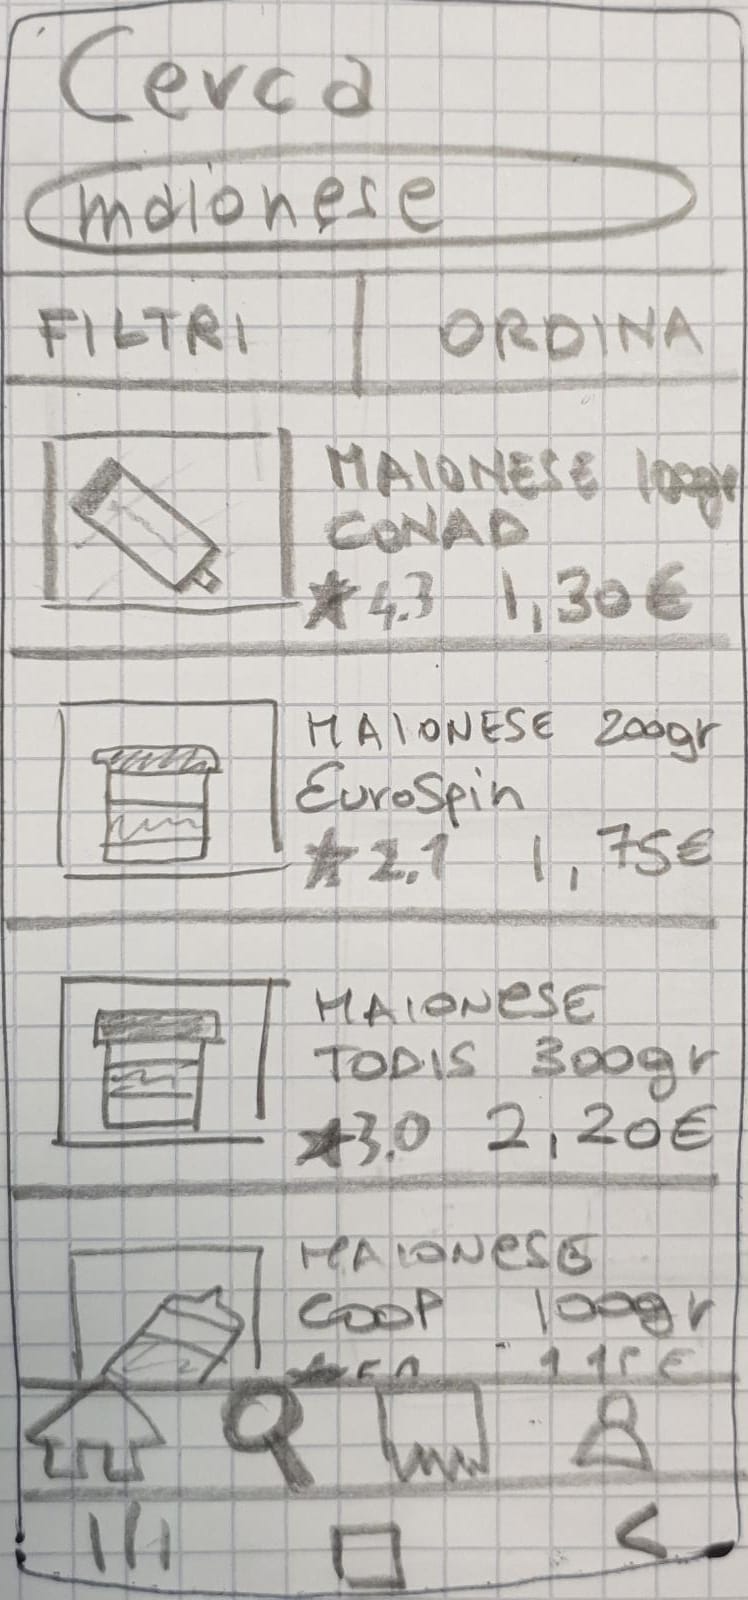 Cerca
maionese
FILTRI ORDINA
MAIONESE 100gr
CONAD
★ 4.3 1,30€
MAIONESE 200gr
EuroSpin
★ 2.1 1,75€
MAIONESE
TODIS 300gr
★ 3.0 2,20€
MAIONESE
COOP 100gr